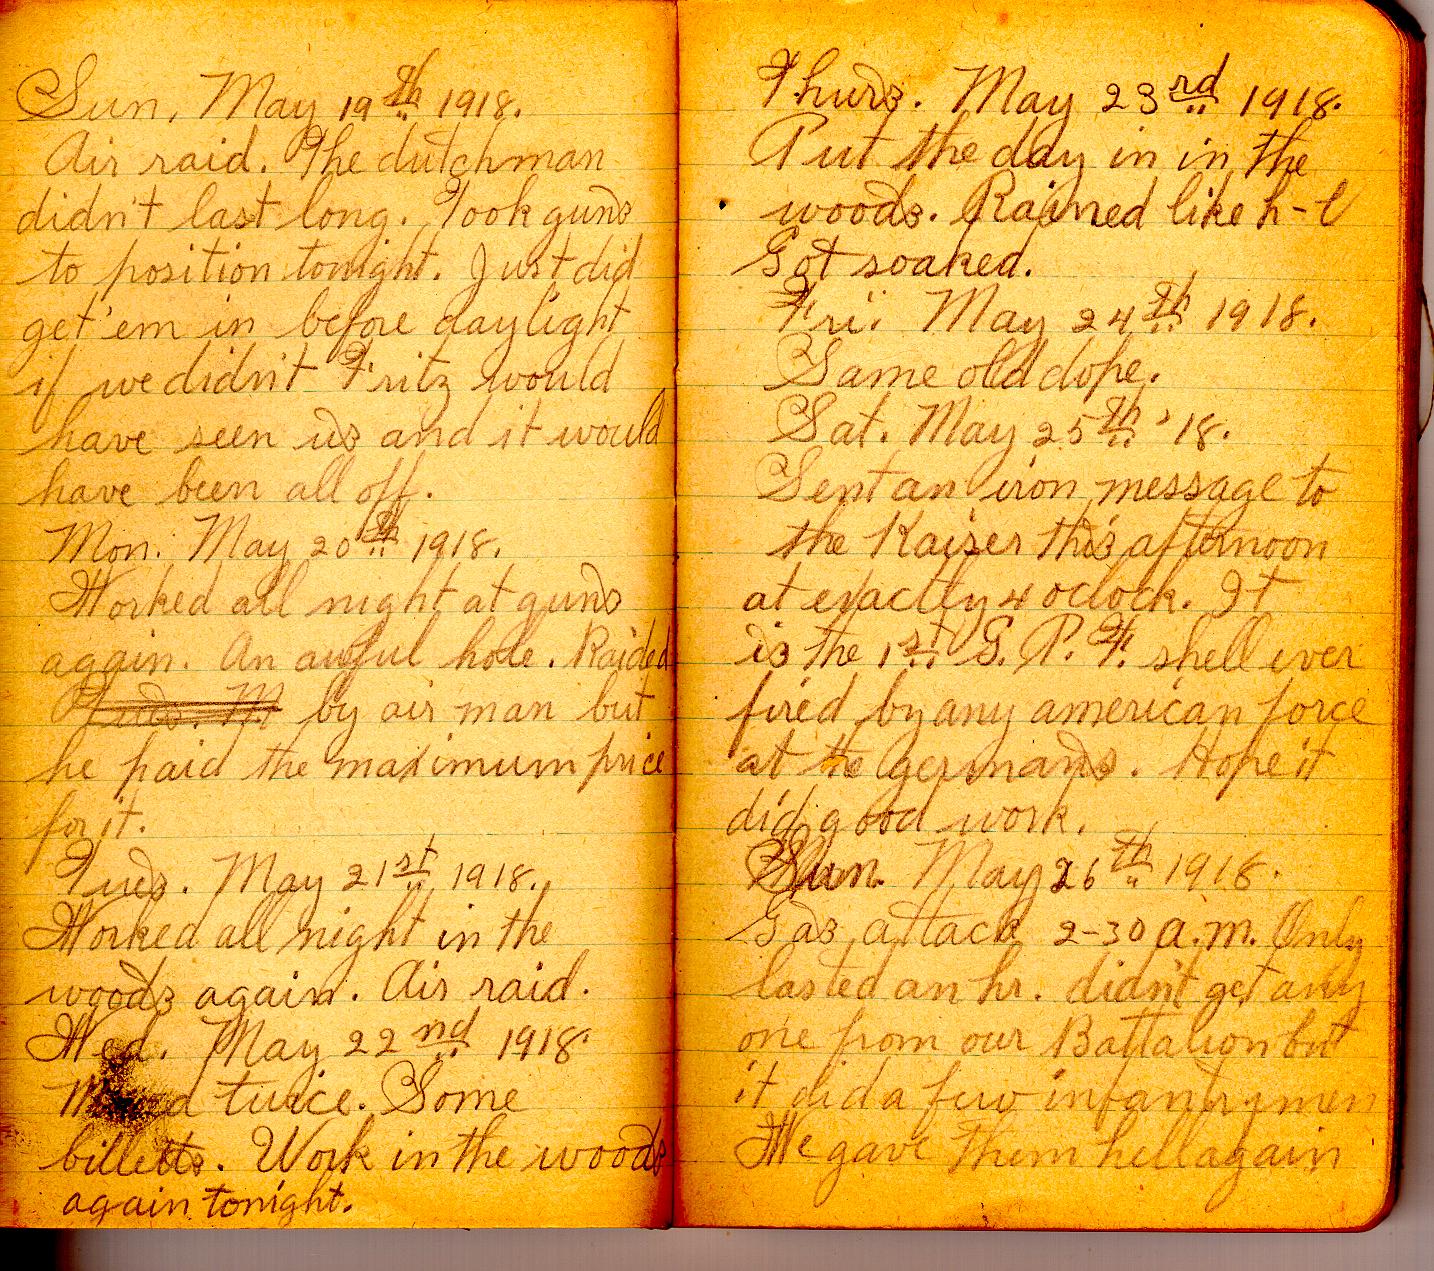 Sun, May 19th 1918.
Air raid. The dutchman
didn't last long. Took guns
to position tonight. Just did
get 'em in before daylight
if we didn't Fritz would
have seen us and it would
have been all off.
Mon. May 20th 1918.
Worked all night at guns
again. An awful hole. Raided
Tues. M by air man but
he paid the maximum price
for it.
Tues. May 21st 1918.
Worked all night in the
woods again. Air raid.
Wed. May 22nd 1918.
Moved twice. Some
billetts. Work in the woods
again tonight.
Thurs. May 23rd 1918.
Put the day in in the
woods. Rained like h-l
Got soaked.
Fri. May 24th 1918.
Same old dope.
Sat. May 25th '18.
Sent an iron message to
the Kaiser this afternoon
at exactly 4 oclock. It
is the 1st G.P.F. shell ever
fired by any american force
at the germans. Hope it
did good work.
Sun. May 26th 1918.
Gas attack 2-30 a.m. Only
lasted an hr. didn't get any
one from our Battalion but
it did a few infantrymen
We gave them hell again